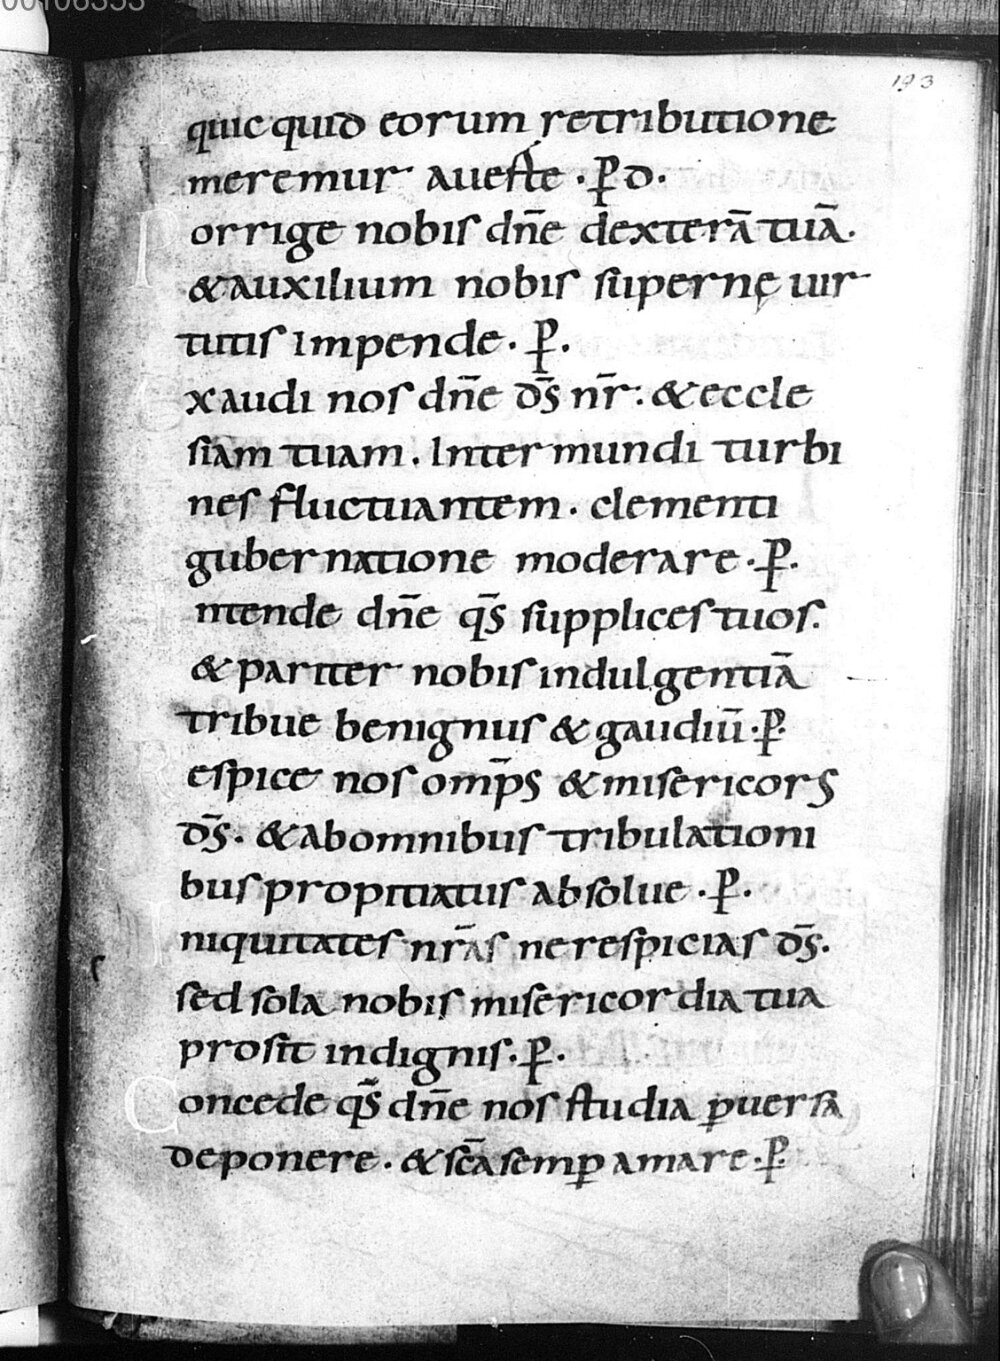 00106353
193
quicquid eorum retributione
meremur aueste · p̄ d.
Porrige nobis dn̄e dexterā tuā.
& auxilium nobis supernę uir
tutis impende · p̄.
Exaudi nos dn̄e d̄s nr̄: & eccle
siam tuam. Inter mundi turbi
nes fluctuantem. clementi
gubernatione moderare · p̄.
Intende dn̄e q̄s supplices tuos.
& pariter nobis indulgentiā
tribue benignus & gaudiū · p̄.
Respice nos omp̄s & misericors
d̄s. & ab omnibus tribulationi
bus propitiatus absolue · p̄.
Iniquitates nr̄as ne respicias d̄s.
sed sola nobis misericordia tua
prosit indignis · p̄.
Concede q̄s dn̄e nos studia ꝑuersa
deponere. & sc̄a semꝑ amare · p̄.